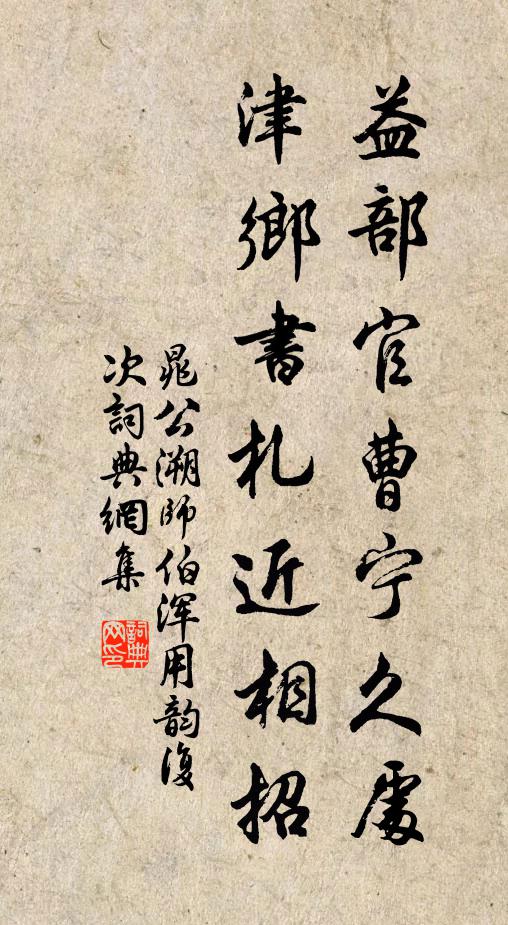 益部官曹宁久處
津鄉書札近相招
晁公溯師伯浑用韵復
次詞典網集
詞典網印